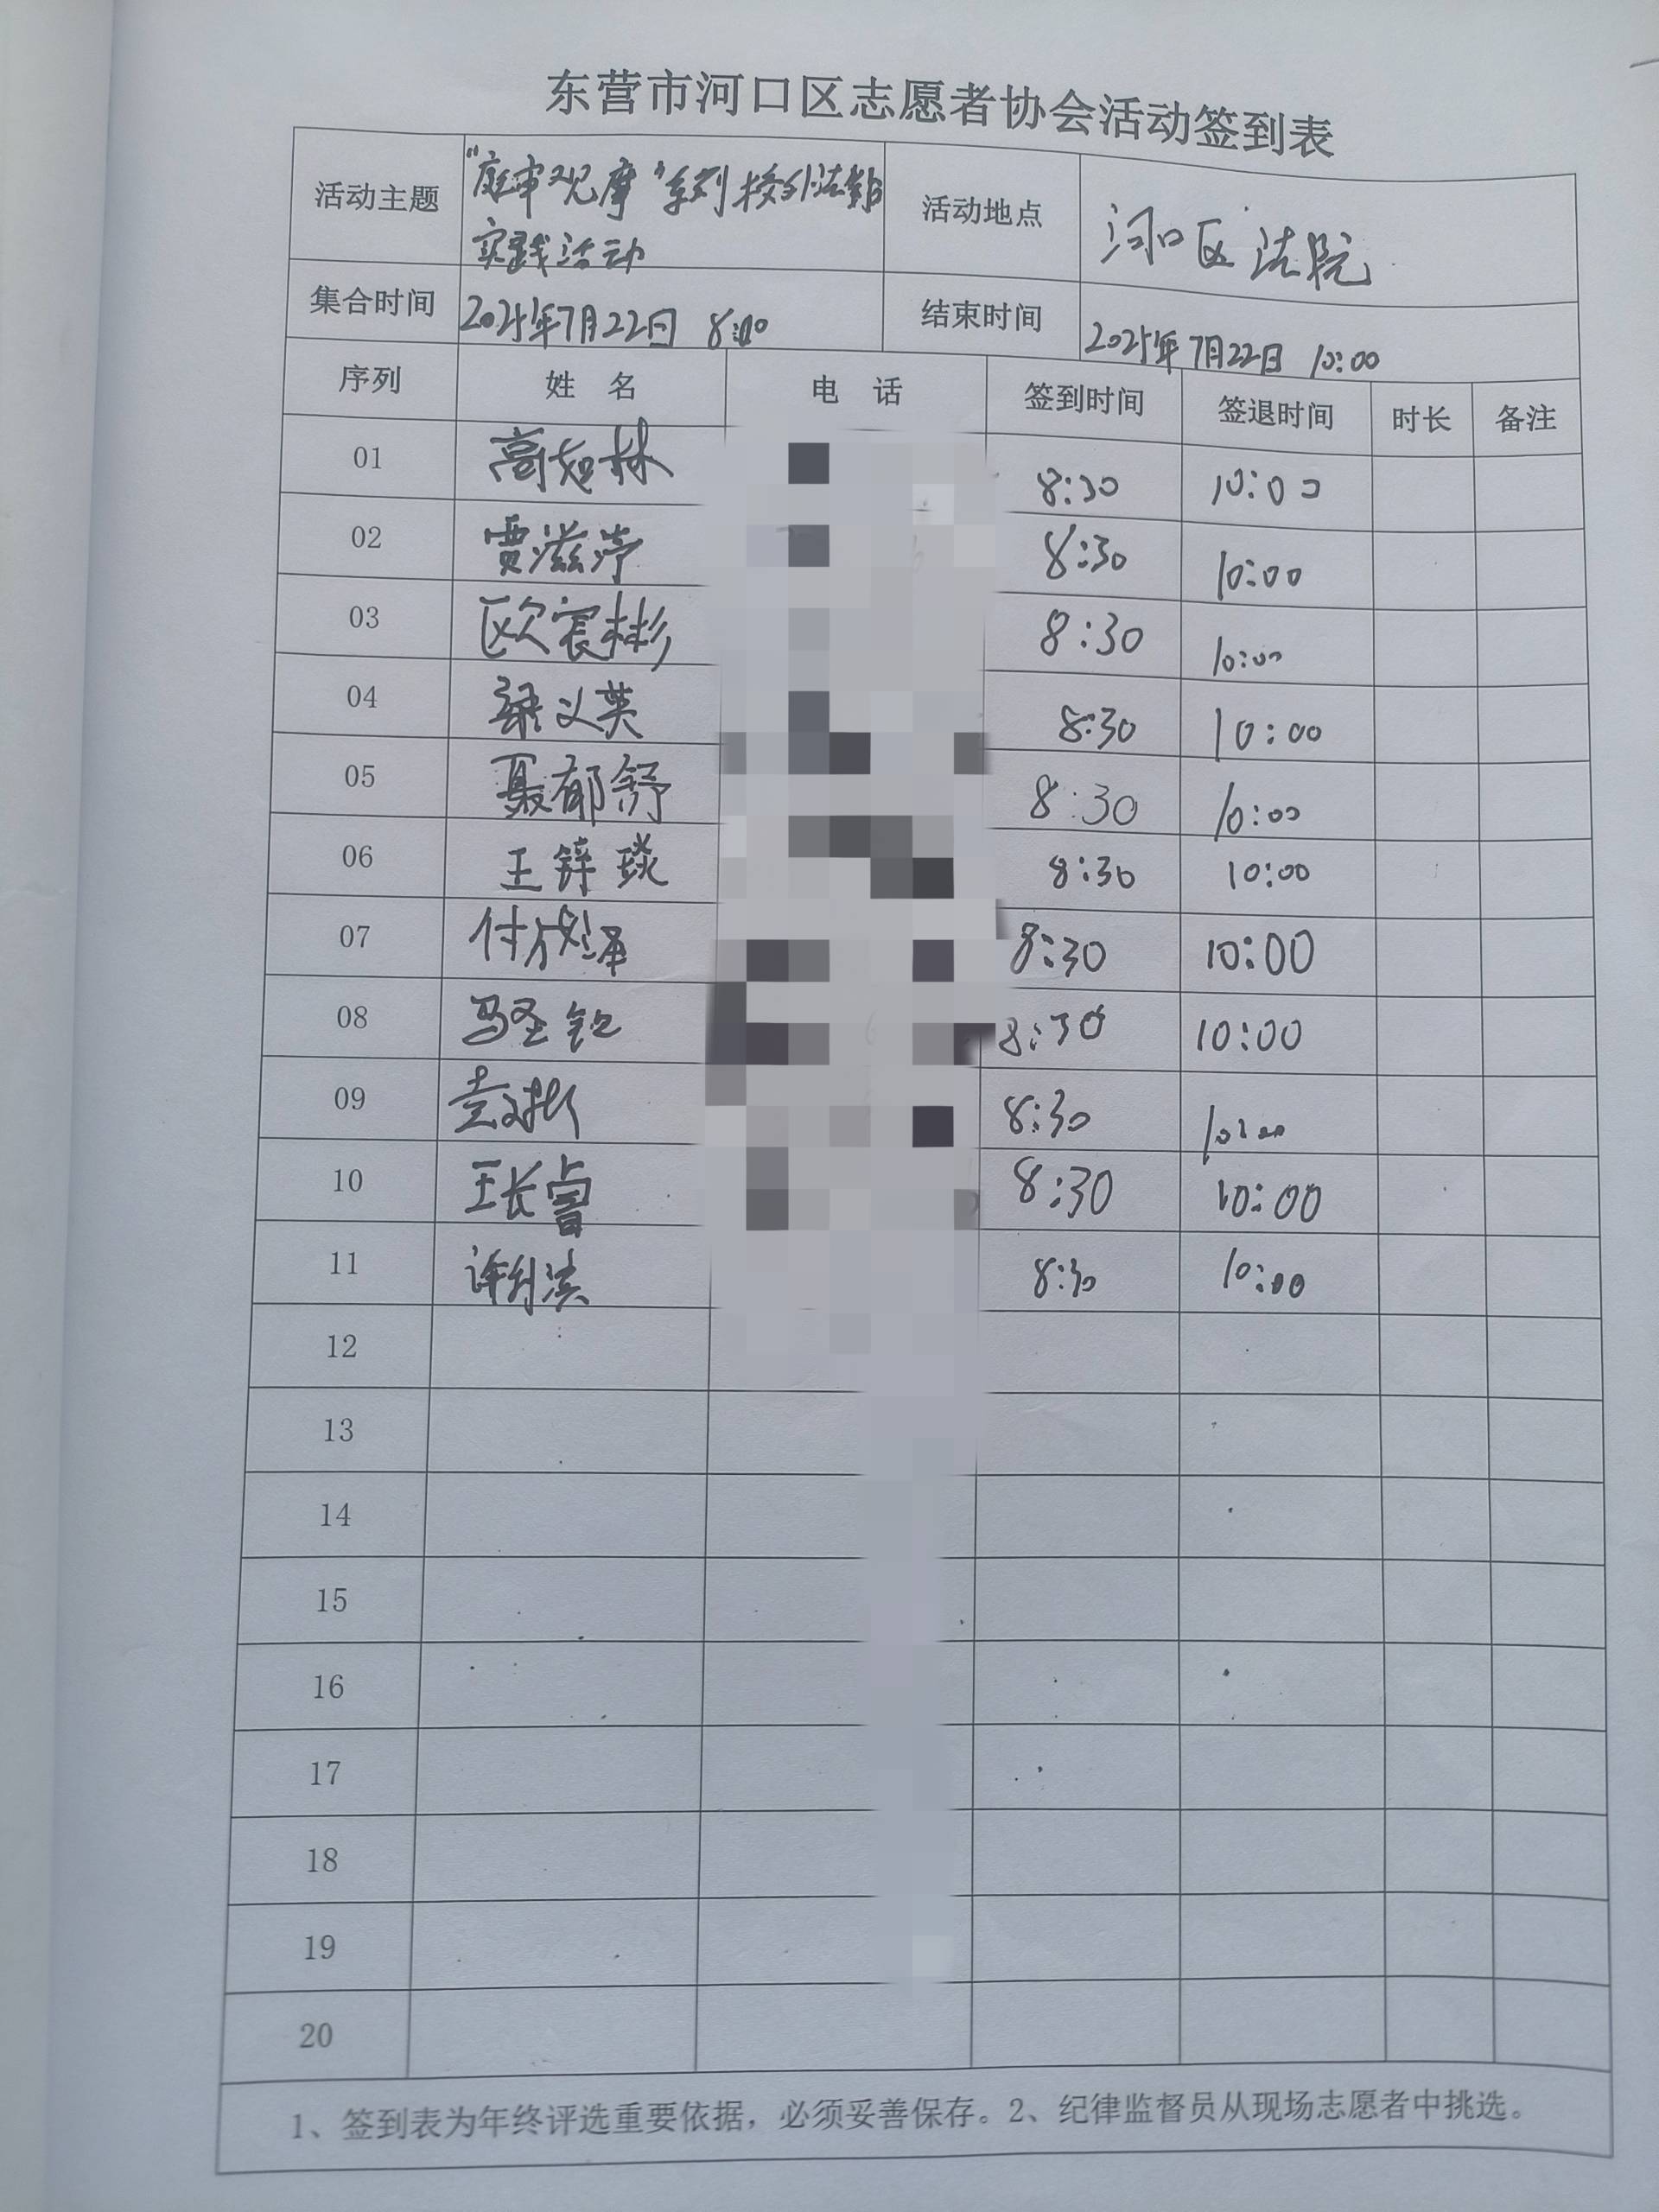 东营市河口区志愿者协会活动签到表
活动主题 “庭审观摩”系列校外法治 活动地点 河口区法院
实践活动
集合时间 2025年7月22日 8:00 结束时间 2025年7月22日 10:00
序列 姓 名 电 话 签到时间 签退时间 时长 备注
01 高 林 8:30 10:00
02 贾滋渟 8:30 10:00
03 区欠宸彬 8:30 10:00
04 义英 8:30 10:00
05 聂郁舒 8:30 10:00
06 王锌琰 8:30 10:00
07 付 泽 8:30 10:00
08 马圣钦 8:30 10:00
09 8:30 10:00
10 王长睿 8:30 10:00
11 许 滨 8:30 10:00
12
13
14
15
16
17
18
19
20
1、签到表为年终评选重要依据，必须妥善保存。2、纪律监督员从现场志愿者中挑选。